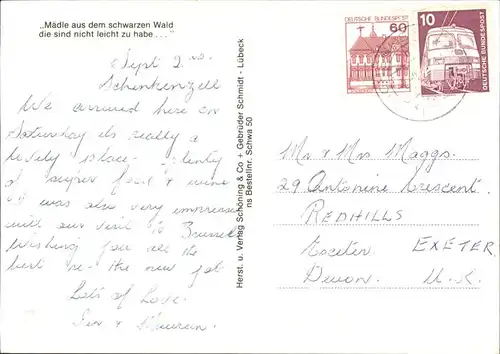 „Mädle aus dem schwarzen Wald
die sind nicht leicht zu habe . . ."
Sept 2nd.
Schenkenzell
We arrived here on
Saturday its really a
lovely place - plenty
of super food & wine
was also very impressed
with our visit to Brussels
Wishing you all the
best re- the new job
Lots of Love
& Maureen.
Herst. u. Verlag Schöning & Co + Gebrüder Schmidt - Lübeck
Bestellnr. Schwa 50
DEUTSCHE BUNDESPOST
60
10
DEUTSCHE BUNDESPOST
Mr & Mrs Maggs.
29 Antonine Crescent.
REDHILLS
Exeter EXETER
Devon. U.K.